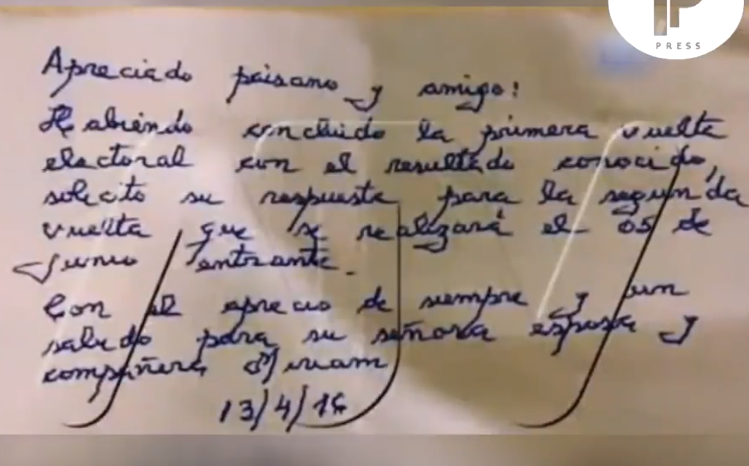 PRESS
Apreciado paisano y amigo:
Habiendo concluido la primera vuelta
electoral con el resultado conocido,
solicito su respuesta para la segunda
vuelta que se realizará el 05 de
Junio entrante.
Con el aprecio de siempre y un
saludo para su señora esposa y
compañera Miriam
13/4/16